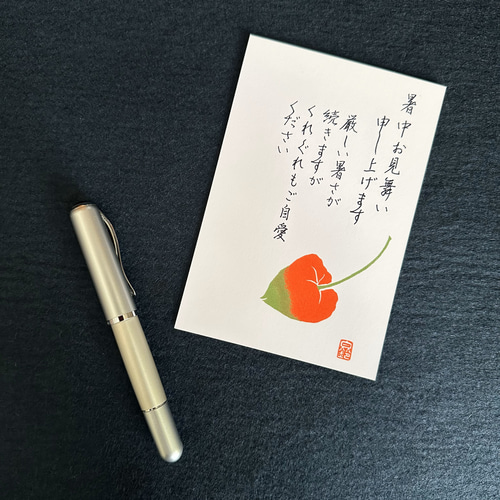 暑中お見舞い
申し上げます
厳しい暑さが
続きますが
くれぐれもご自愛
ください